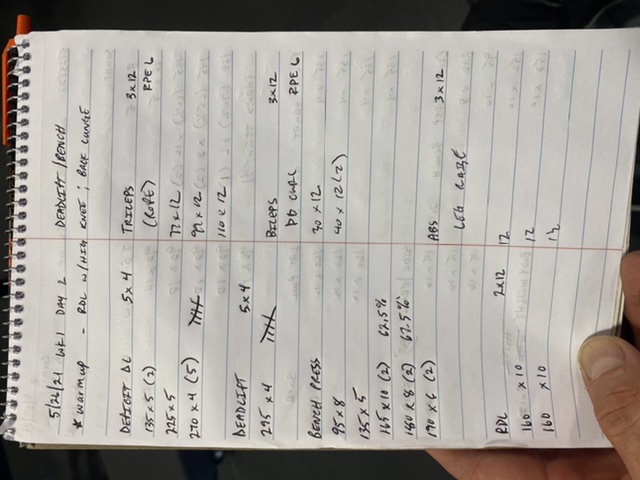 5/26/21 WK1 DAY 2 DEADLIFT/BENCH
* WARMUP - RDL W/HIGH KNEE ; BACK LUNGE
DEFICIT DL 5x4
135 x 5 (2)
225 x 5
270 x 4 (5)
DEADLIFT 5x4
295 x 4
BENCH PRESS
95 x 8
135 x 5
165 x 10 (2) 62.5%
180 x 8 (2) 67.5%
190 x 6 (2)
RDL 2x12
160 x 10
160 x 10
TRICEPS 3x12
(ROPE) RPE 6
77 x 12
99 x 12
110 x 12
BICEPS 3x12
DB CURL RPE 6
30 x 12
40 x 12 (2)
ABS 3x12
LEG RAISE
12
12
12